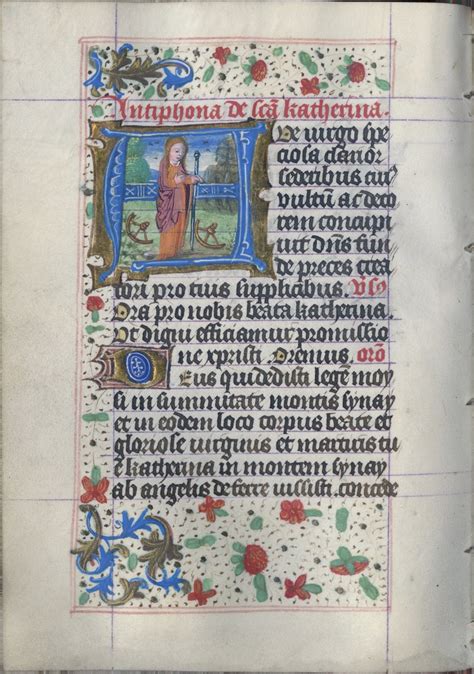 Antiphona de scā katherina.
AUe uirgo spe
ciosa clarior
sederibus cuiꝰ
vultum ac deco
rem concupi
uit dn̄s fun
de preces crea
tori pro tuis supplicibus. Vs
Ora pro nobis beata katherina.
Vt digni efficiamur promissio
ne xpristi Oremus. orō
DEus qui dedisti legē moy
si in summitate montis synay
et in eodem loco corpus beate et
gloriose uirginis et martiris tu
e katherina in montem synay
ab angelis deferre iussisti. concede